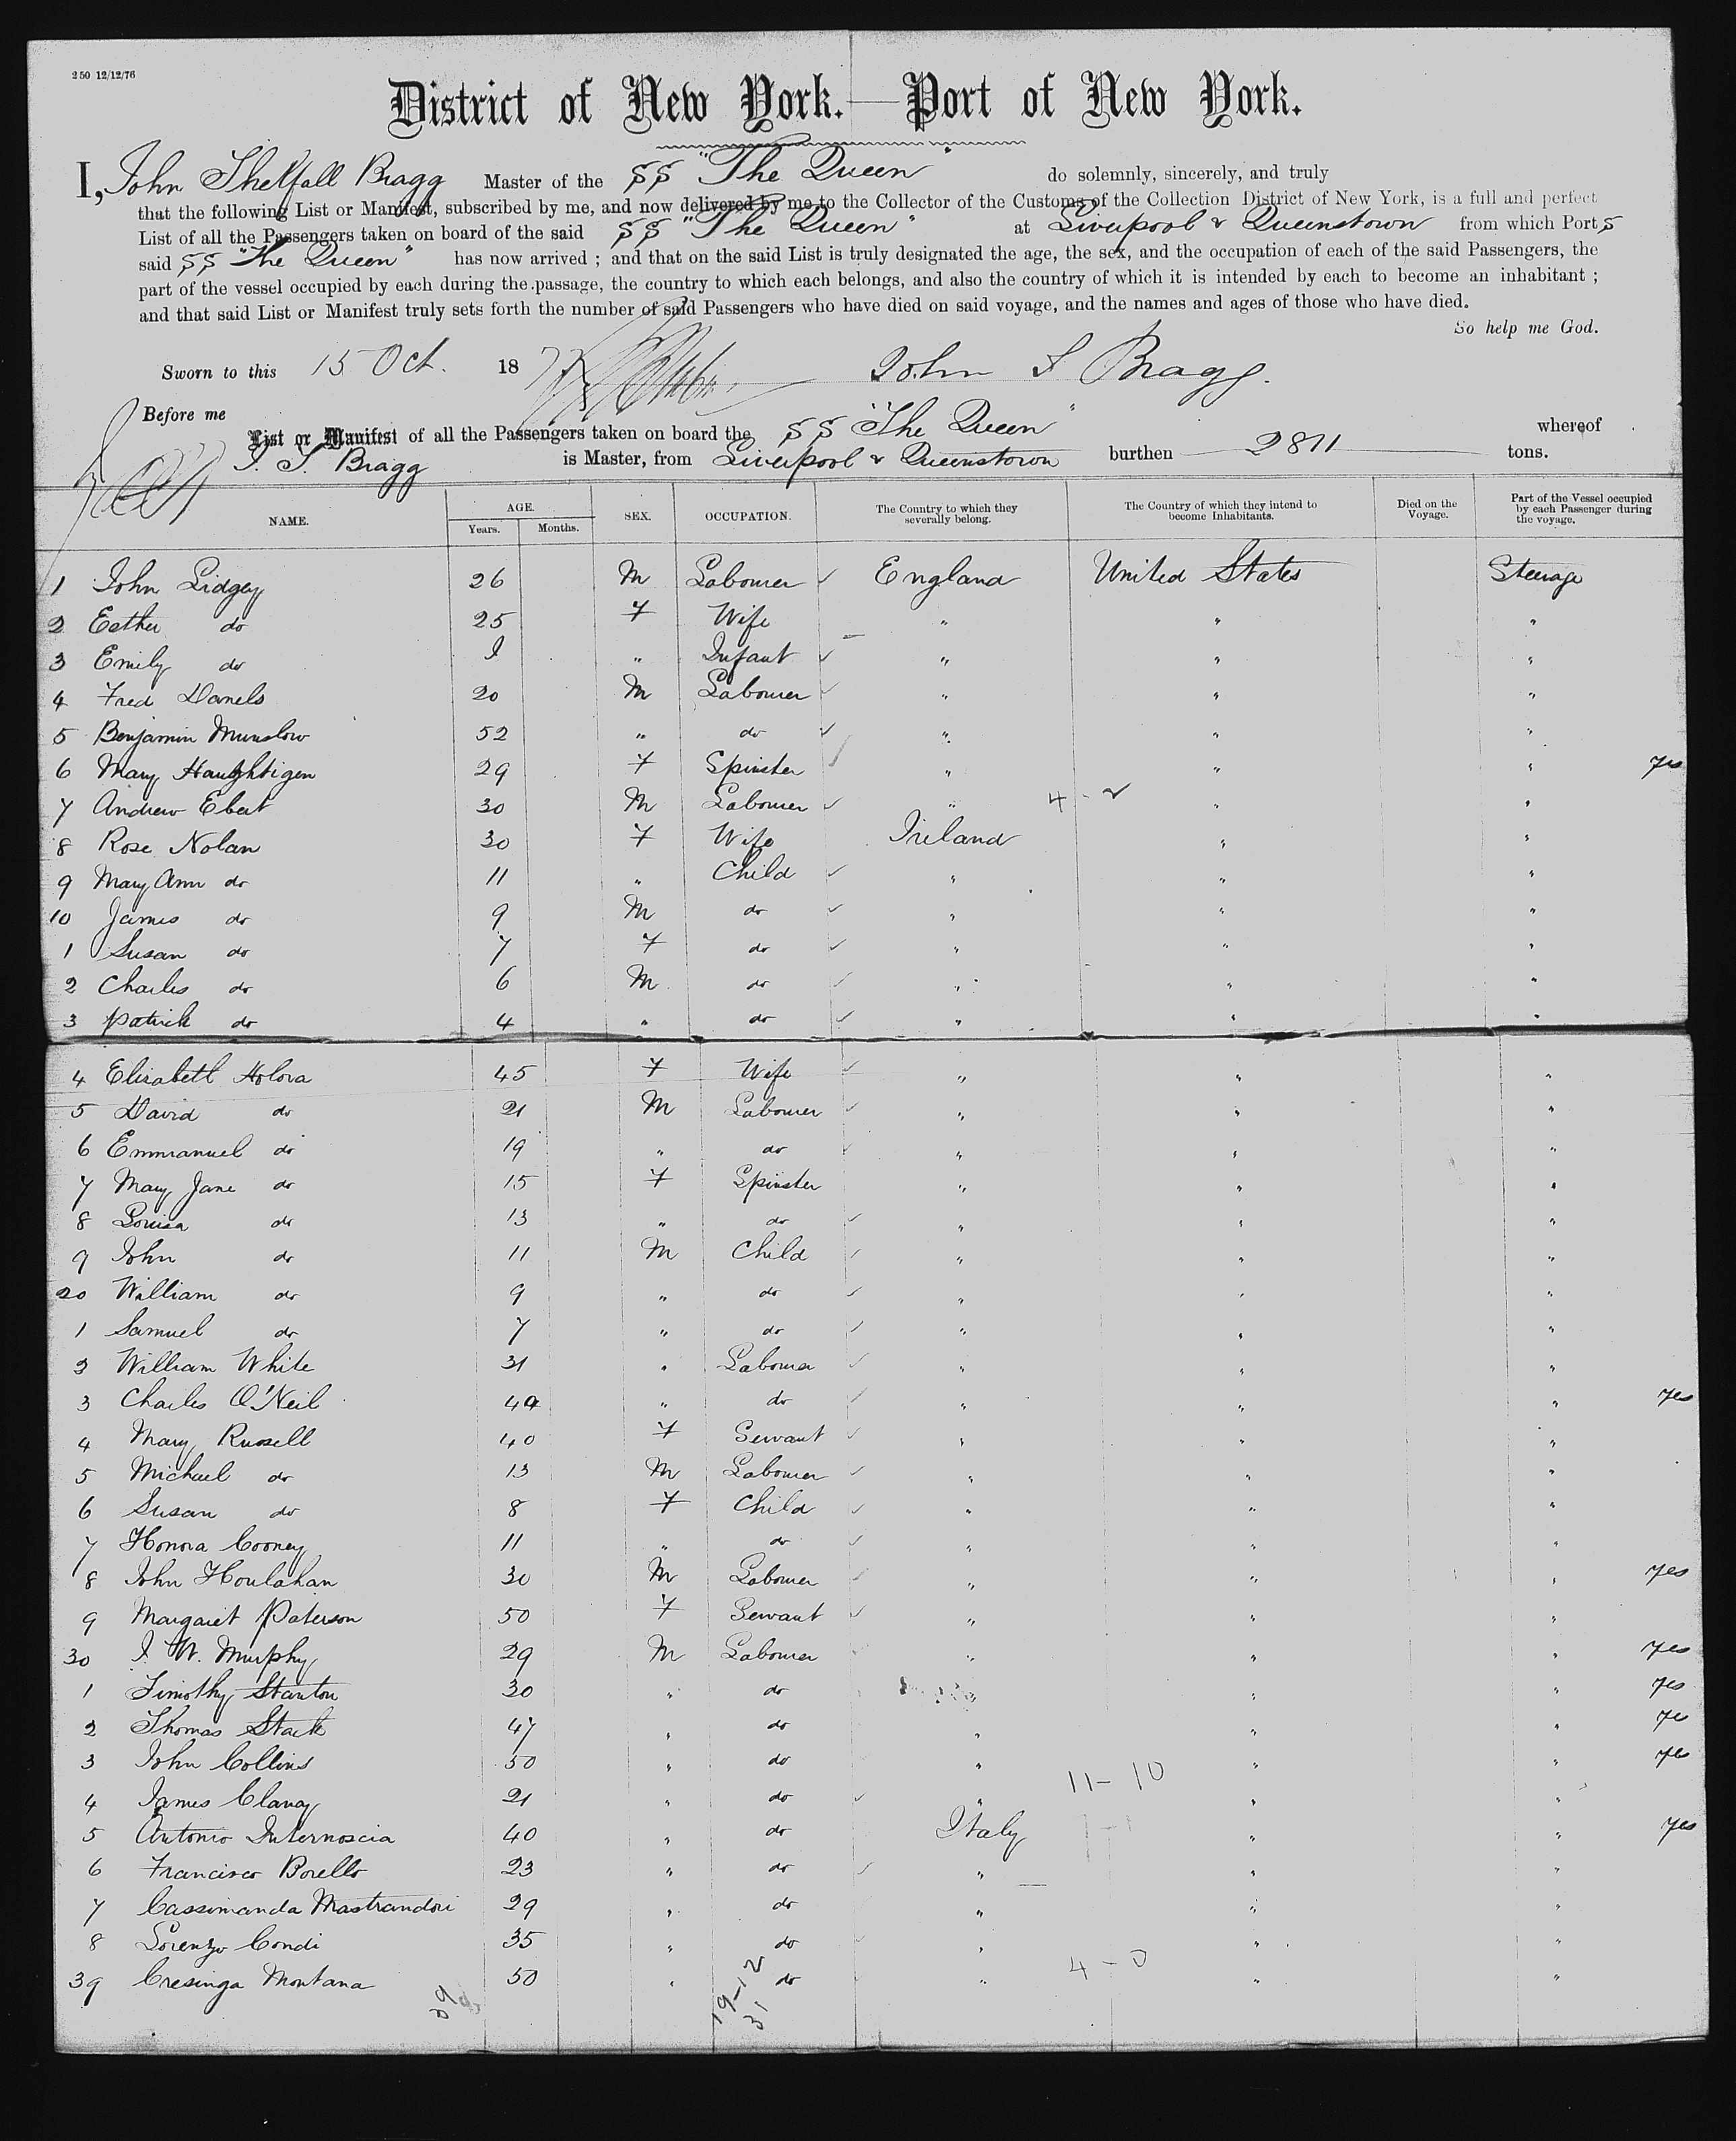 250 12/12/76
District of New York.—Port of New York.
I, John Thelfall Bragg Master of the SS "The Queen" do solemnly, sincerely, and truly
that the following List or Manifest, subscribed by me, and now delivered by me to the Collector of the Customs of the Collection District of New York, is a full and perfect
List of all the Passengers taken on board of the said SS "The Queen" at Liverpool & Queenstown from which Ports
said SS "The Queen" has now arrived ; and that on the said List is truly designated the age, the sex, and the occupation of each of the said Passengers, the
part of the vessel occupied by each during the passage, the country to which each belongs, and also the country of which it is intended by each to become an inhabitant ;
and that said List or Manifest truly sets forth the number of said Passengers who have died on said voyage, and the names and ages of those who have died.
So help me God.
Sworn to this 15 Oct. 1877 John T Bragg.
Before me
List or Manifest of all the Passengers taken on board the SS "The Queen" whereof
J. T. Bragg is Master, from Liverpool & Queenstown burthen 2811 tons.
NAME. AGE. Years. Months. SEX. OCCUPATION. The Country to which they severally belong. The Country of which they intend to become Inhabitants. Died on the Voyage. Part of the Vessel occupied by each Passenger during the voyage.
1 John Lidgey 26 M Labourer ✓ England United States Steerage
2 Esther do 25 F Wife " " "
3 Emily do 1 " Infant ✓ " " "
4 Fred Daniels 20 M Labourer ✓ " " "
5 Benjamin Munslow 52 " do ✓ " " "
6 Mary Haughtigan 29 F Spinster ✓ " " " yes
7 Andrew Ebert 30 M Labourer ✓ " 4 - 2 " "
8 Rose Nolan 30 F Wife Ireland " "
9 Mary Ann do 11 " Child ✓ " " "
10 James do 9 M do ✓ " " "
1 Susan do 7 F do ✓ " " "
2 Charles do 6 M do ✓ " " "
3 Patrick do 4 " do ✓ " " "
4 Elizabeth Holova 45 F Wife ✓ " " "
5 David do 21 M Labourer ✓ " " "
6 Emmanuel do 19 " do ✓ " " "
7 Mary Jane do 15 F Spinster " " "
8 Louisa do 13 " do ✓ " " "
9 John do 11 M Child ✓ " " "
20 William do 9 " do ✓ " " "
1 Samuel do 7 " do ✓ " " "
2 William White 31 " Labourer ✓ " " "
3 Charles O'Neil 49 " do ✓ " " " yes
4 Mary Russell 40 F Servant ✓ " " "
5 Michael do 13 M Labourer ✓ " " "
6 Susan do 8 F Child ✓ " " "
7 Honora Cooney 11 " do ✓ " " "
8 John Houlahan 30 M Labourer " " " yes
9 Margaret Paterson 50 F Servant ✓ " " "
30 J. W. Murphy 29 M Labourer " " " yes
1 Timothy Stanton 30 " do " " " yes
2 Thomas Stack 47 " do " " " yes
3 John Collins 50 " do " " " yes
4 James Clancy 21 " do ✓ " 11-10 " "
5 Antonio Internoscia 40 " do Italy 1-1 " " yes
6 Francisco Borello 23 " do ✓ " " "
7 Cassimanda Mastrandori 29 " do " " "
8 Lorenzo Condi 35 " do " " "
39 Cresinga Montana 50 " do " 4-0 " "
39
19-12
31